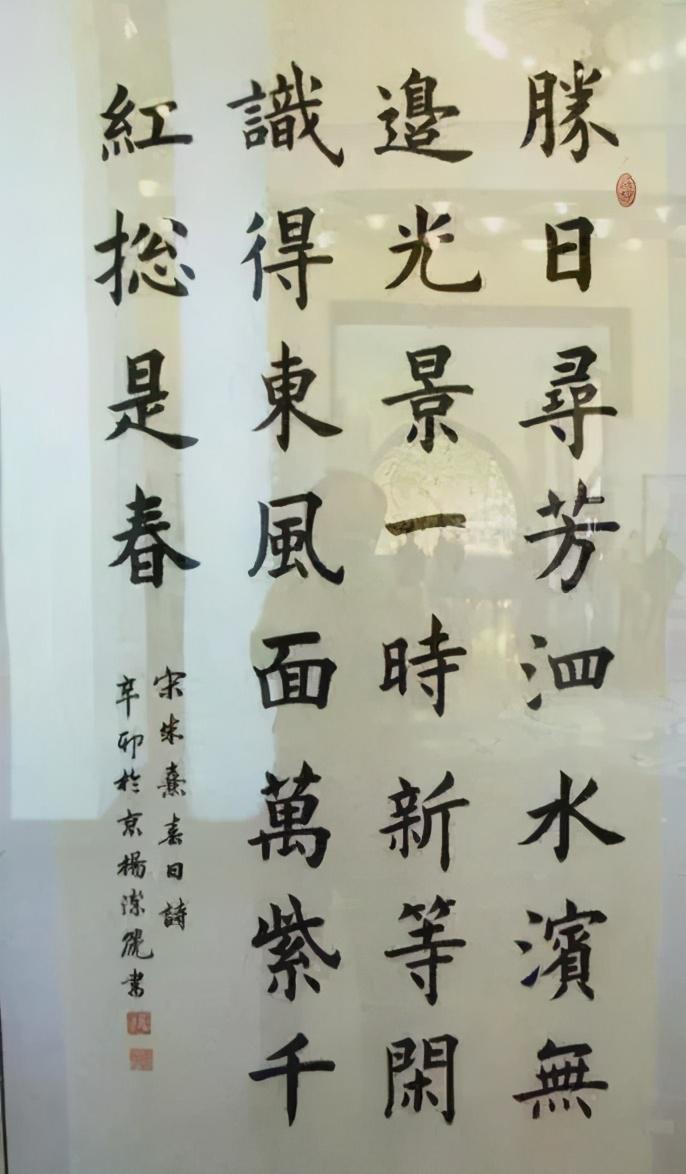 勝日尋芳泗水濱無
邊光景一時新等閑
識得東風面萬紫千
紅総是春
宋朱熹春日詩
辛卯於京楊潔晚書